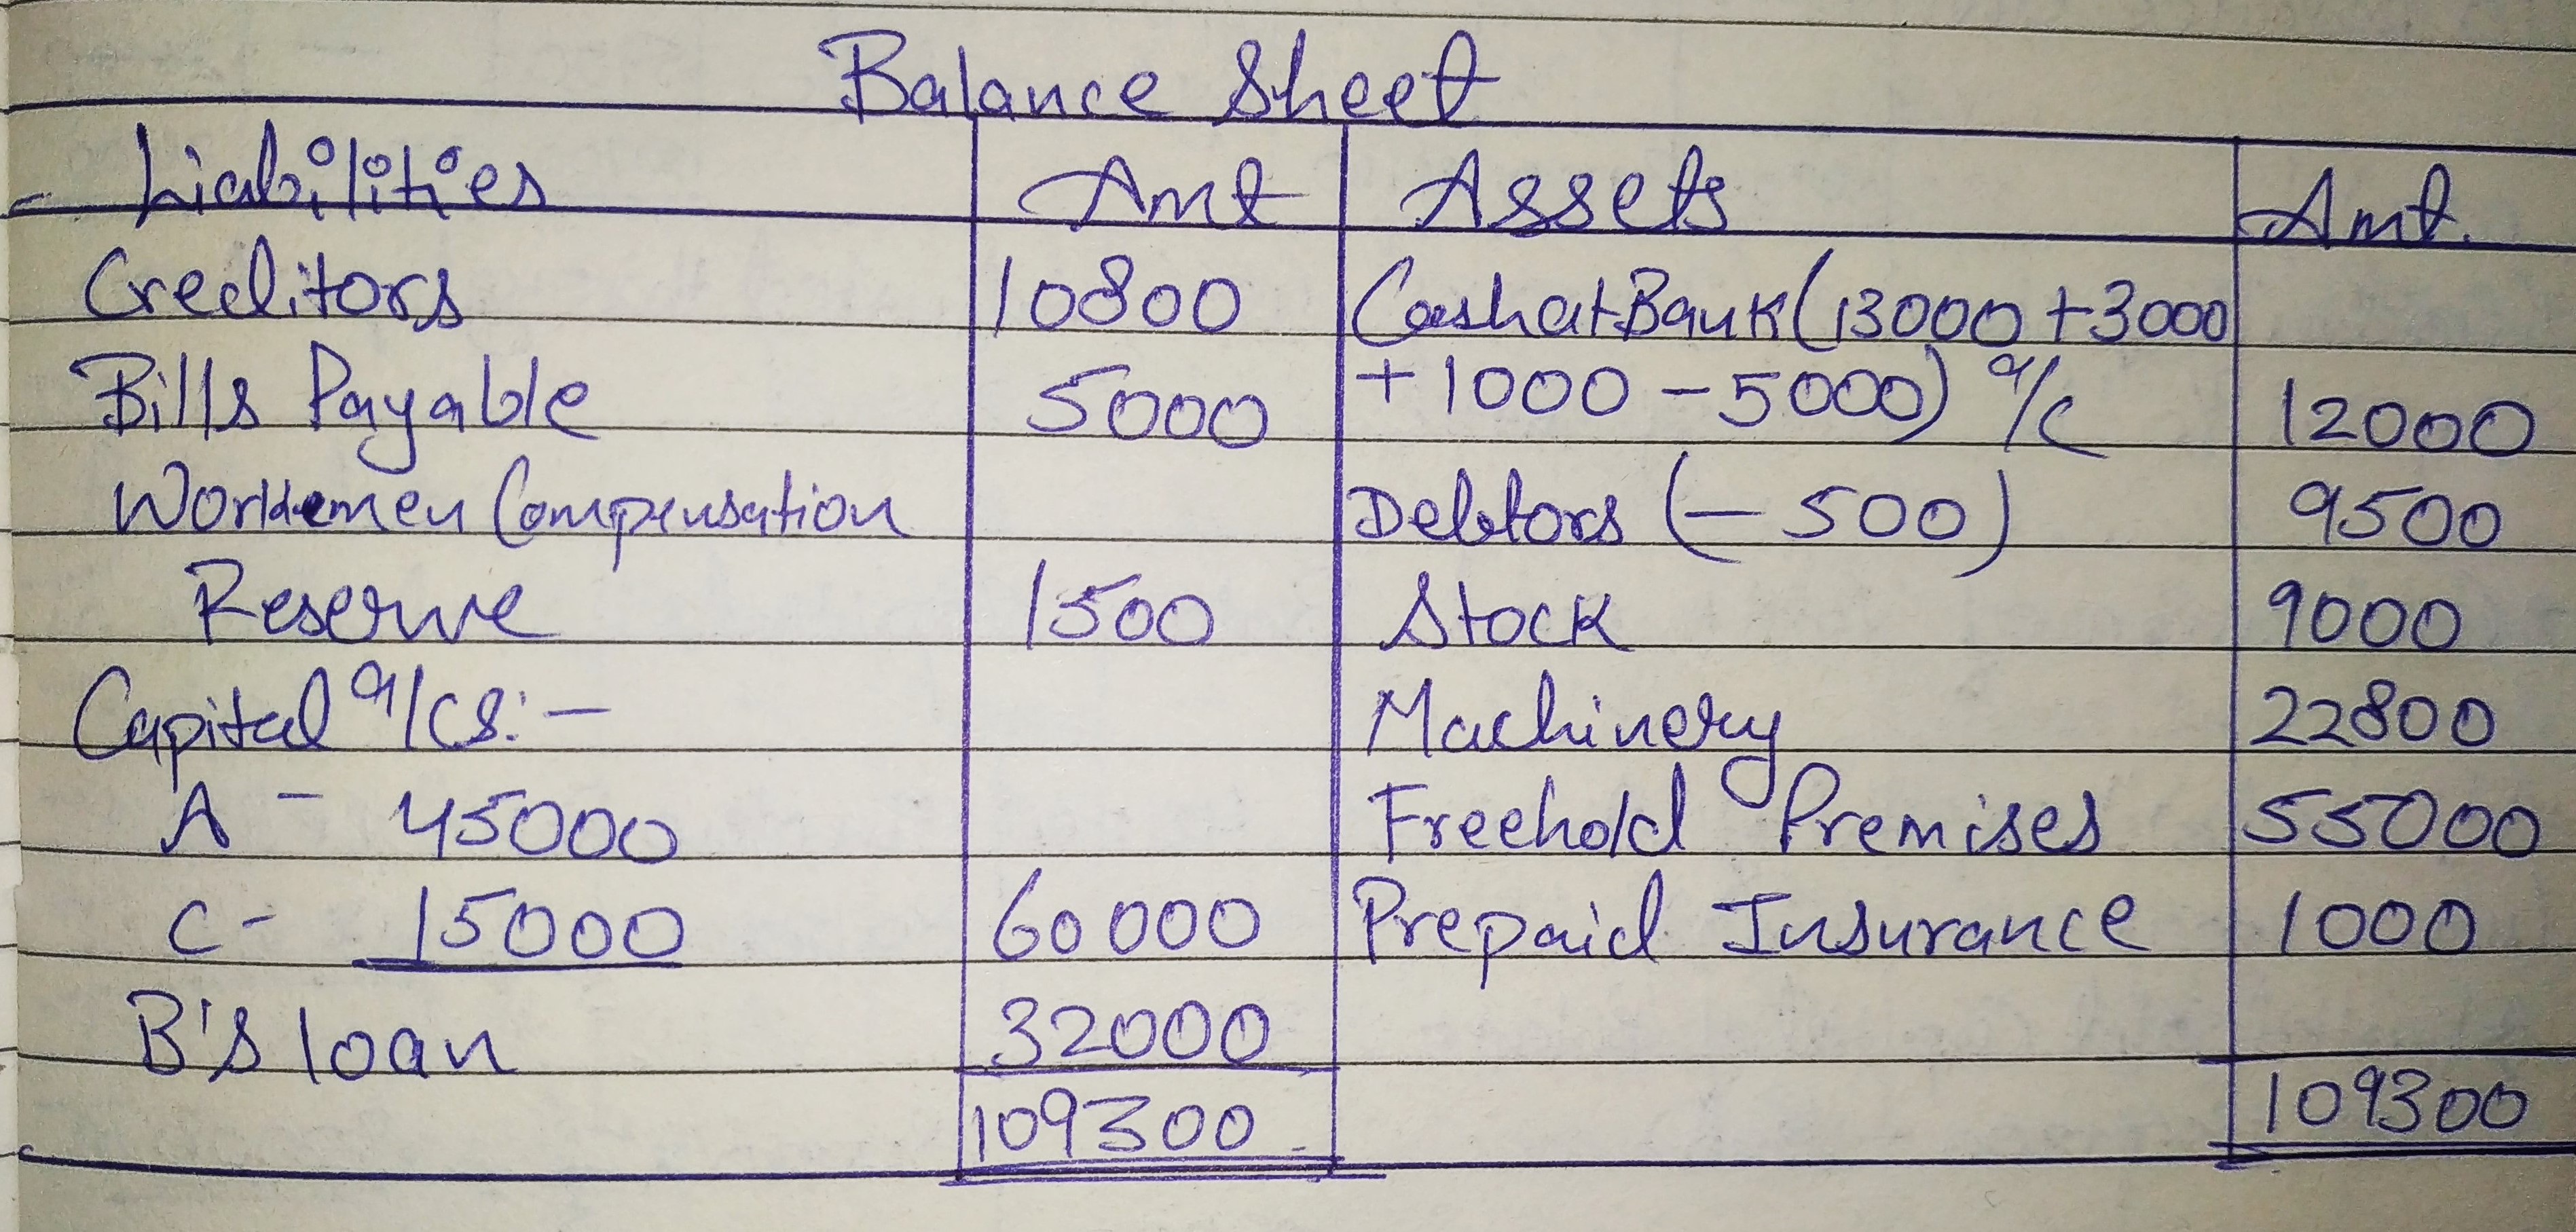 Balance Sheet
Liabilities Amt Assets Amt.
Creditors 10800 Cash at Bank (13000 + 3000
Bills Payable 5000 + 1000 - 5000) a/c 12000
Workemen Compensation Debtors (- 500) 9500
Reserve 1500 Stock 9000
Capital a/cs:- Machinery 22800
A - 45000 Freehold Premises 55000
C - 15000 60000 Prepaid Insurance 1000
B's loan 32000
109300 109300